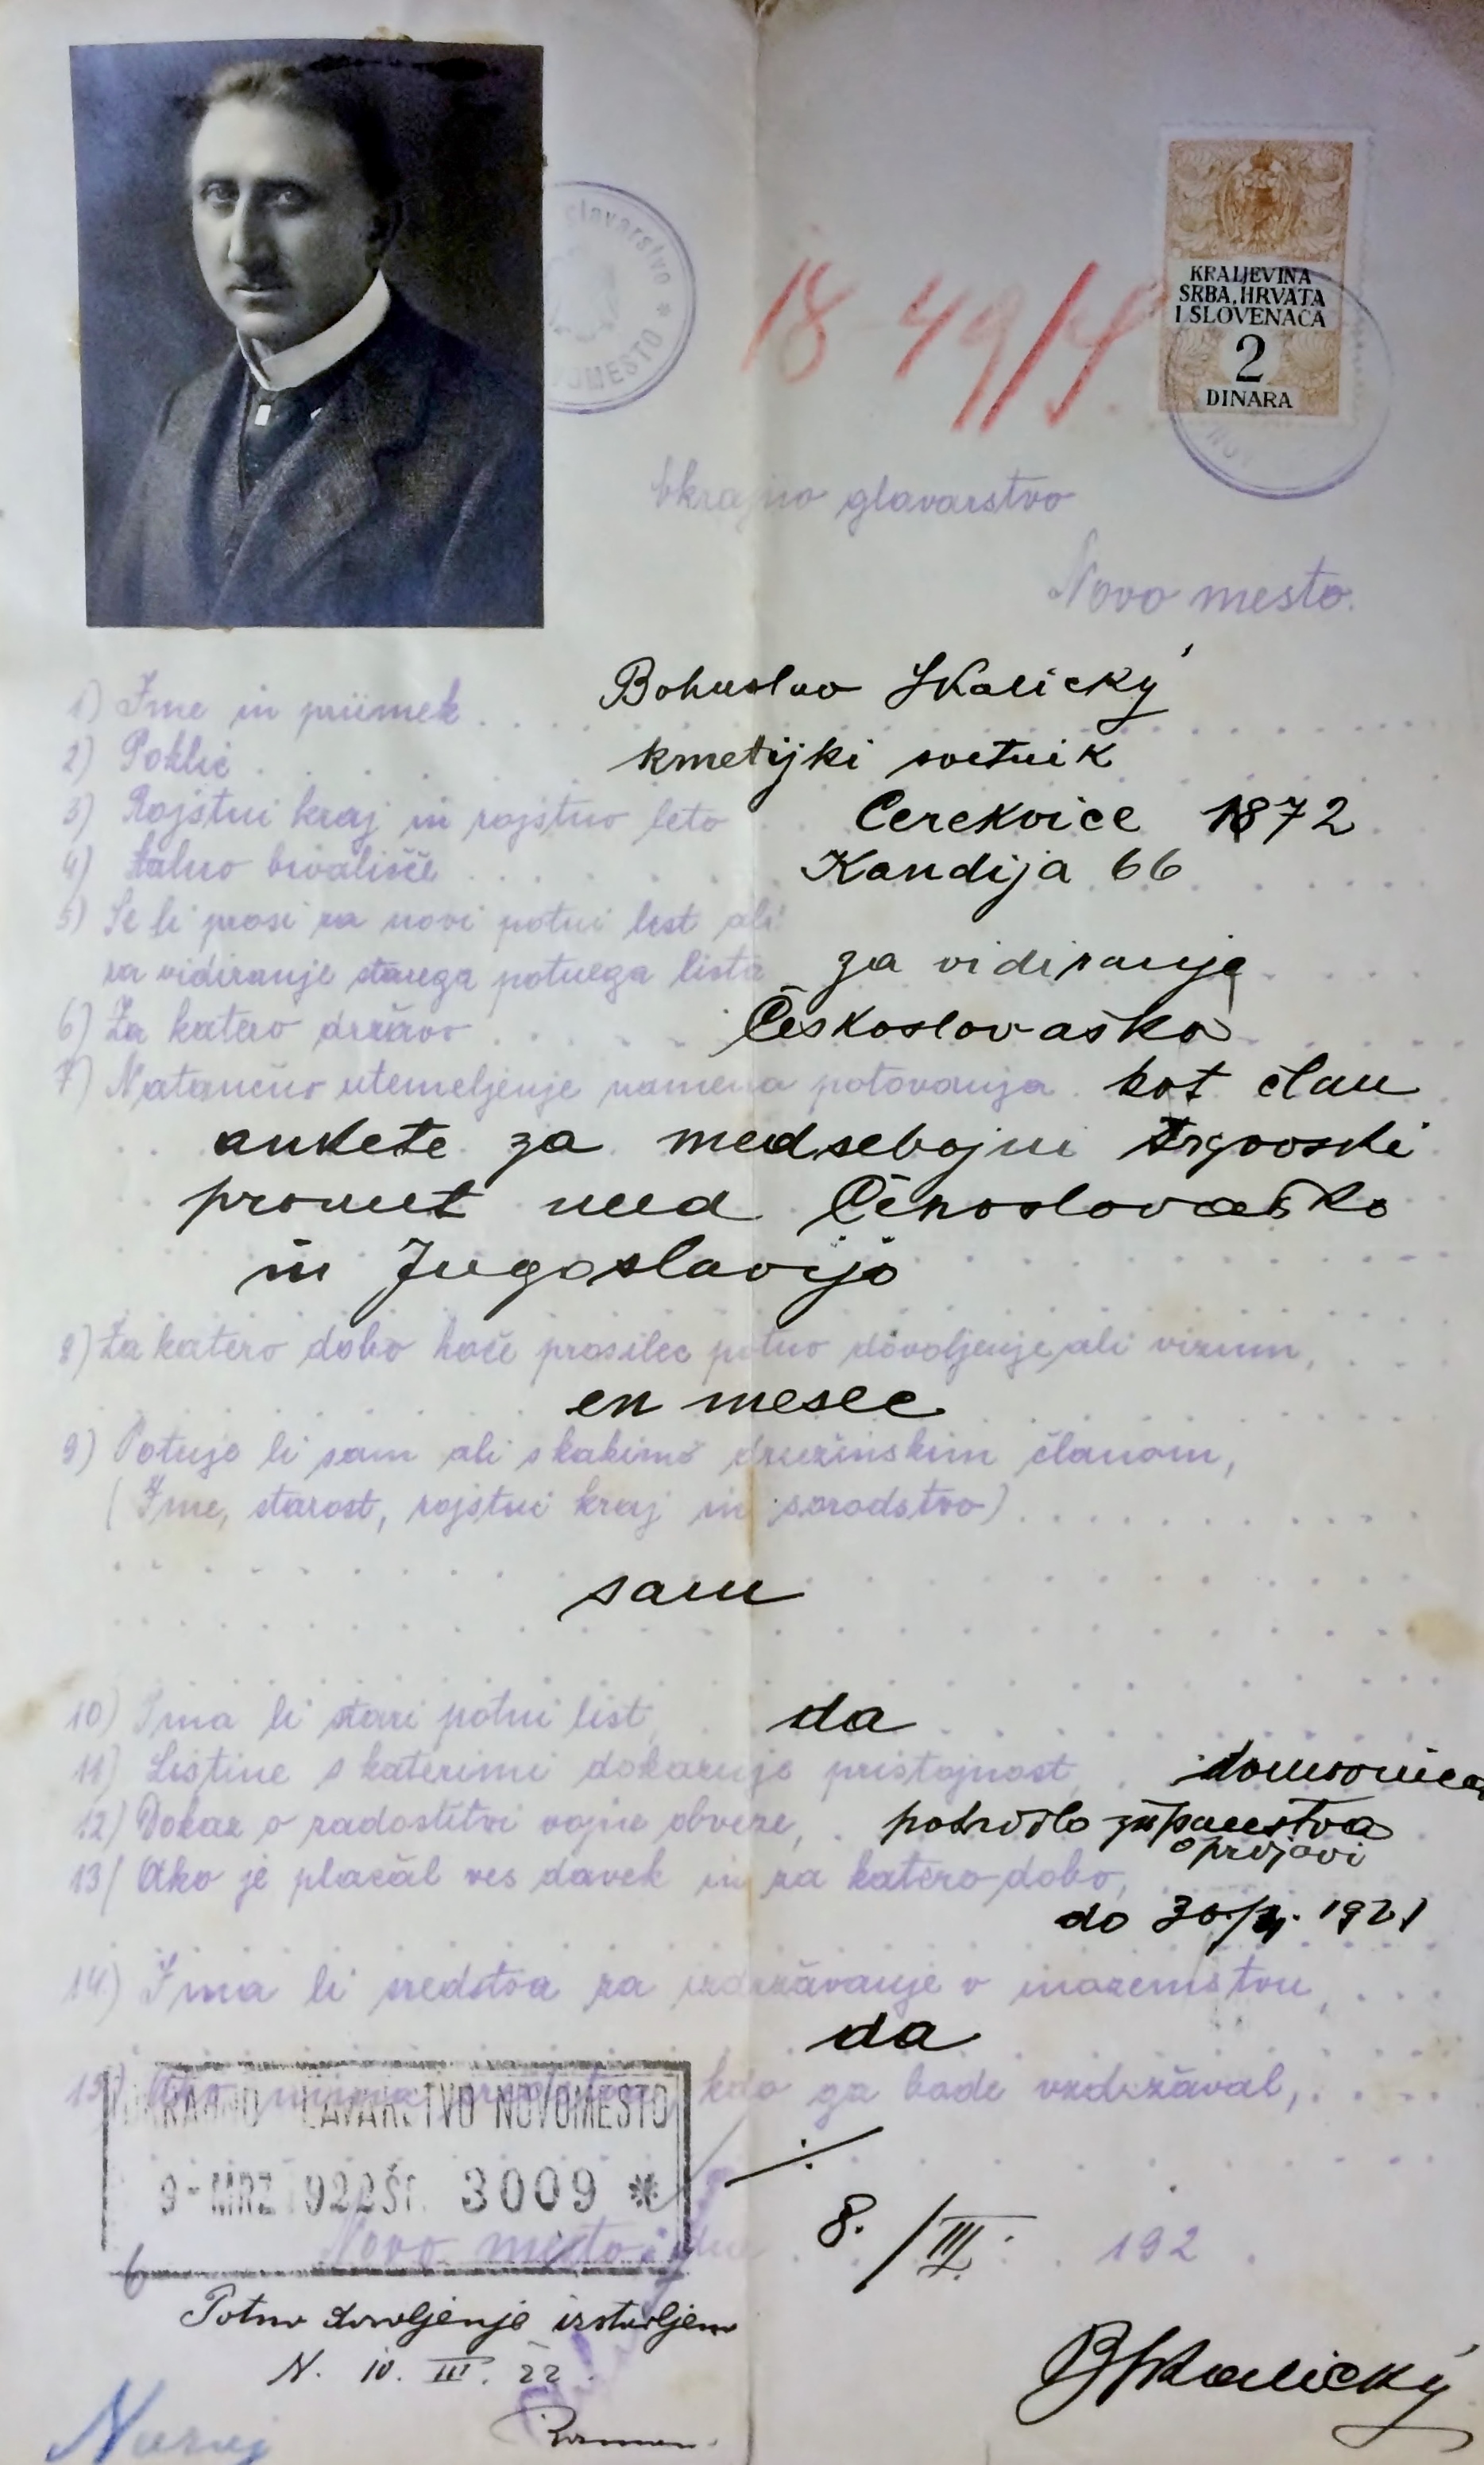 glavarstvo *
OMESTO
18 49/
KRALJEVINA
SRBA, HRVATA
I SLOVENACA
2
DINARA
NOV
Okrajno glavarstvo
Novo mesto.
1) Ime in priimek . . . Bohuslav Skalický
2) Poklic . . . kmetijki svetnik
3) Rojstni kraj in rojstno leto . . Cerekvice 1872
4) Stalno bivališče . . . Kandija 66
5) Se li prosi za novi potni list ali
za vidiranje starega potnega lista za vidiranje
6) Za katero državo . . . Českoslovaško
7) Natančno utemeljenje namena potovanja . kot član
ankete za medsebojni trgovski
promet med Čehoslovaško
in Jugoslavijo
8) Za katero dobo hoče prosilec potno dovoljenje, ali vizum,
en mesec
9) Potuje li sam ali s kakimo družinskim članom,
(Ime, starost, rojstni kraj in sorodstvo)
sam
10) Ima li stari potni list, da
11) Listine s katerimi dokazuje pristojnost, . domovnica
12) Dokaz o zadostitvi vojne obveze, . potrdilo županstva
o prijavi
13) Ako je plačal ves davek in za katero dobo,
do 30/ 1921
14) Ima li sredstva za izdrzávanje v inozemstvu,
da
15) Ako nima sredstva, kdo ga bode vzdrzával,
OKRAJNO GLAVARSTVO NOVOMESTO
9-MRZ 1922 Št. 3009 *
./.
Novo mesto, dne 8./III. 192 .
Potno dovoljenje izstavljeno
N. 10. III. 22.
BSkalický